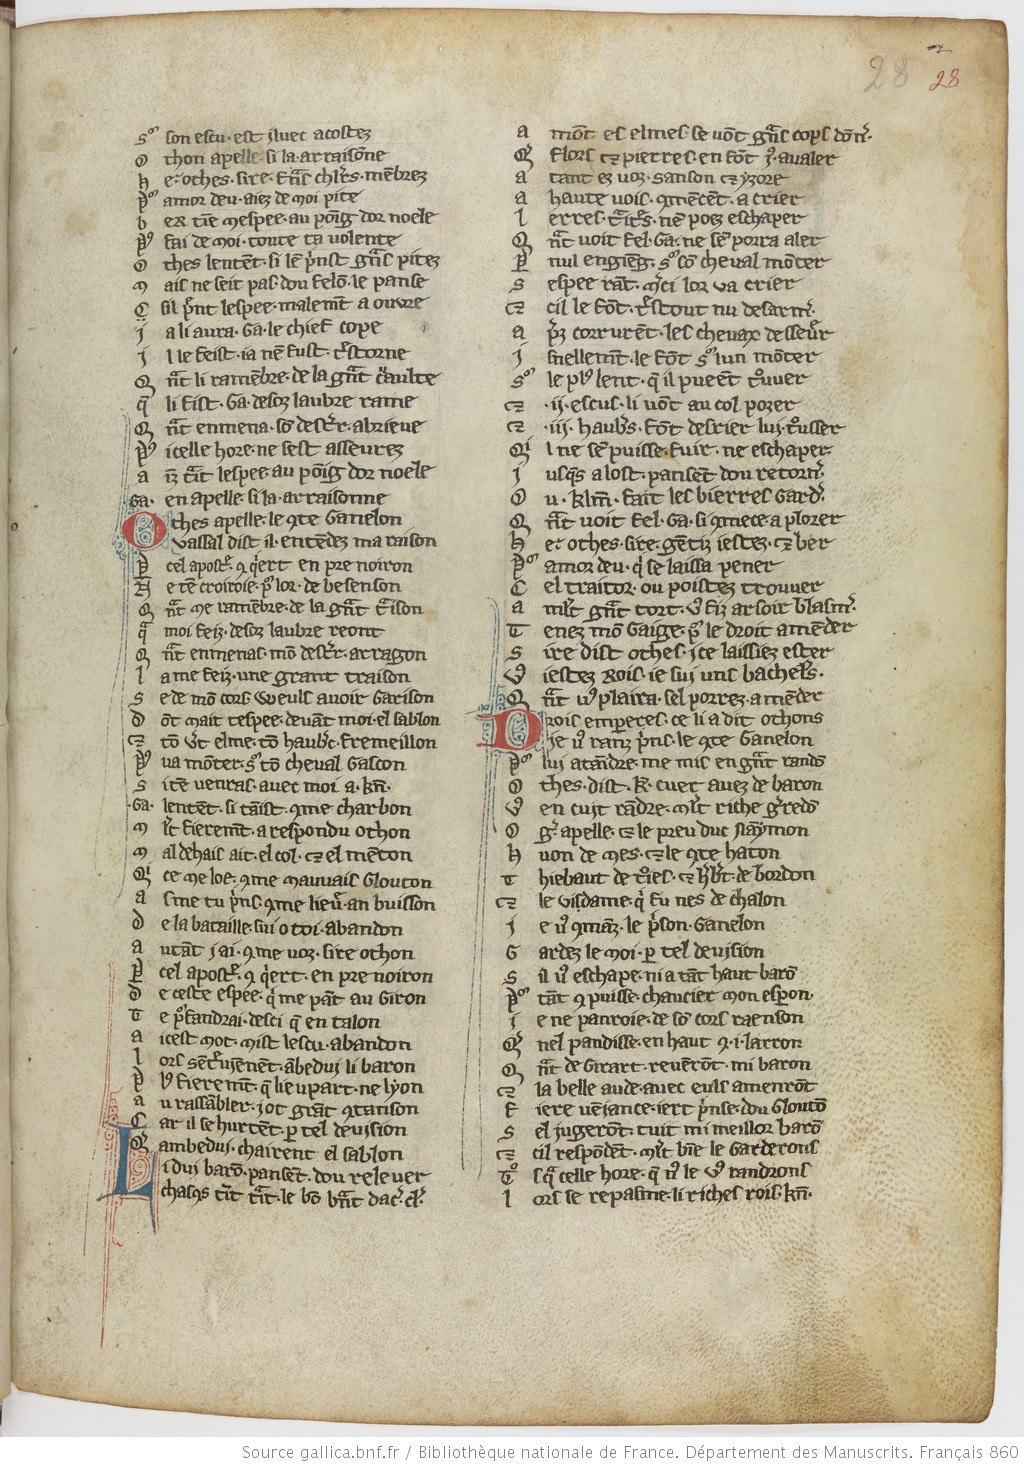 28
28
S9 son escu · est jluec acostez
O thon apelle · si la · arraisone
h e · othes · sire · fns chlrs · mebrez
P9 amor deu · aiez de moi pite
b ex tie mespee · au poig · dor noele
P9 fai de moi · toute ta volente
O thes lentet · si le pnst gns pitez
M ais ne seit pas · dou felo · le panse
C sil prnt lespee · malemt a ouvre
j a li aura · Ga · le chief cope
j l le feist · ia ne fust · trstorne
Q nt li ramebre · de la gnt
q li fist · Ga · desoz laubre rame
Q nt enmena · so destrr · abrieve
P9 icelle hore · ne sest asseurez
a iz trit lespee · au poig dor noele
Ga · en apelle · si la · arraisonne
Othes apelle · le 9te Ganelon
Vassal dist il · entedez ma raison
P cel apostre · 9 qert en pre noiron
N e te croiroie · pr lor · de besenson
Q nt me ramebre · de la gnt traison
q moi feiz · desoz laubre reont
Q nt enmenas · mo destrr · arragon
l a me feiz · une grant traison
S e de mo cors weuls avoir garison
d ot mait tespee · devat moi · el sablon
et to vrt elme · to haubrc · fremeillon
P9 va moter · sr to cheval gascon
S ite venras · avec moi a · kn ·
Ga · lentet · si taist · 9me charbon
M lt fieremt · a respondu othon
M al dehais ait · el col · et el meton
Qi ce me loe · 9me mauvais glouton
a sme tu prns · 9me lieur · an buisson
d e la bataille · sui o toi · abandon
a utat j ai · 9me voz · sire othon
P cel apostre · 9 qert · en pre noiron
d e ceste espee · q me pat au giron
T e prfandrai · desci q en talon
a icest mot · mist lescu · abandon
l ors setrvienent · abedui li baron
P lus fieremt · q lieupart · ne lyon
a u rassabler · j ot grat 9tanson
C ar il se hurtet · p tel devision
Q ambedui · chairent el sablon
Li dui baro · panset · dou relever
chas9s tit trit · le bo brant dacr · clr ·
a mot es elmes se vot gns cops donr ·
Q flors et pierres · en fot jr · avaler
a tant ez voz · sanson et yzore
a haute vois · 9mencet · a crier
l erres · tritrs · ne poez eschaper
Q nt voit fel · Ga · ne se porra aler
P nul engieg · sr so cheval moter
S espee rat · mci lor va crier
et cil le fot · trstout nu desarmr ·
a prz corruret · les chevax desseur
j snellemt · le fot sr lun moter
S9 le plus lent · q il pueent trouver
et · ij · escus · li vot au col pozer
et · iij · haubrs · fot derrier lui trousser
Qi l ne se puisse · fuir · ne eschaper
j usqs a lost · panset dou retornr ·
O u · klm · fait les bierres gardr ·
Q nt voit fel · Ga · si 9mece · a plorer
h e · othes · sire · getiz iestes · et ber
P9 amor deu · q se laissa pener
C el traitor · ou poistez trouver
a mlt gnt tort · v9 fiz arsoir blasmr ·
T enez mo gaige · pr le droit ameder
S ire dist othes · ice laissiez ester
V iestez rois · ie sui uns bachelrs ·
Q nt v9 plaira · sel porrez · ameder
Drois emperes · ce li a dit othons
Je v9 ranz prns · le 9te Ganelon
P9 lui atadre · me mis en gnt rando
O thes · dist · k · cuer avez de baron
V en cuit radre · mlt riche grredo
O gr · apelle · et le preu duc Naymon
h uon de mes · et le 9te haton
T hiebaut de tries · et hbrt · de bordon
et le visdame · q fu nes de chalon
j e v9 9maz · le prson · Ganelon
G ardez le moi · p tel devision
S il v9 eschape · ni a tat haut baro
P9 tat 9 puisse · chaucier mon esperon ·
j e ne panroie · de so cors raenson
Q nel pandisse · en haut 9 · i · larron
Q nt de Girart · reverot · mi baron
et la belle aude · avec euls amenrot
F iere vejance · iert prnse · dou glouto
S el jugerot · tuit mi meillor baro
et cil respodet · mlt bie le garderons
T sq a celle hore · q n9 le v9 randrons
l ors se repasme · li riches rois · kn ·
Source gallica.bnf.fr / Bibliothèque nationale de France. Département des Manuscrits. Français 860